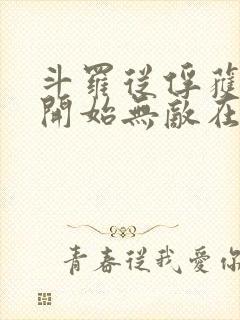 斗羅從俘獲
開始無敵在
青春從我愛你